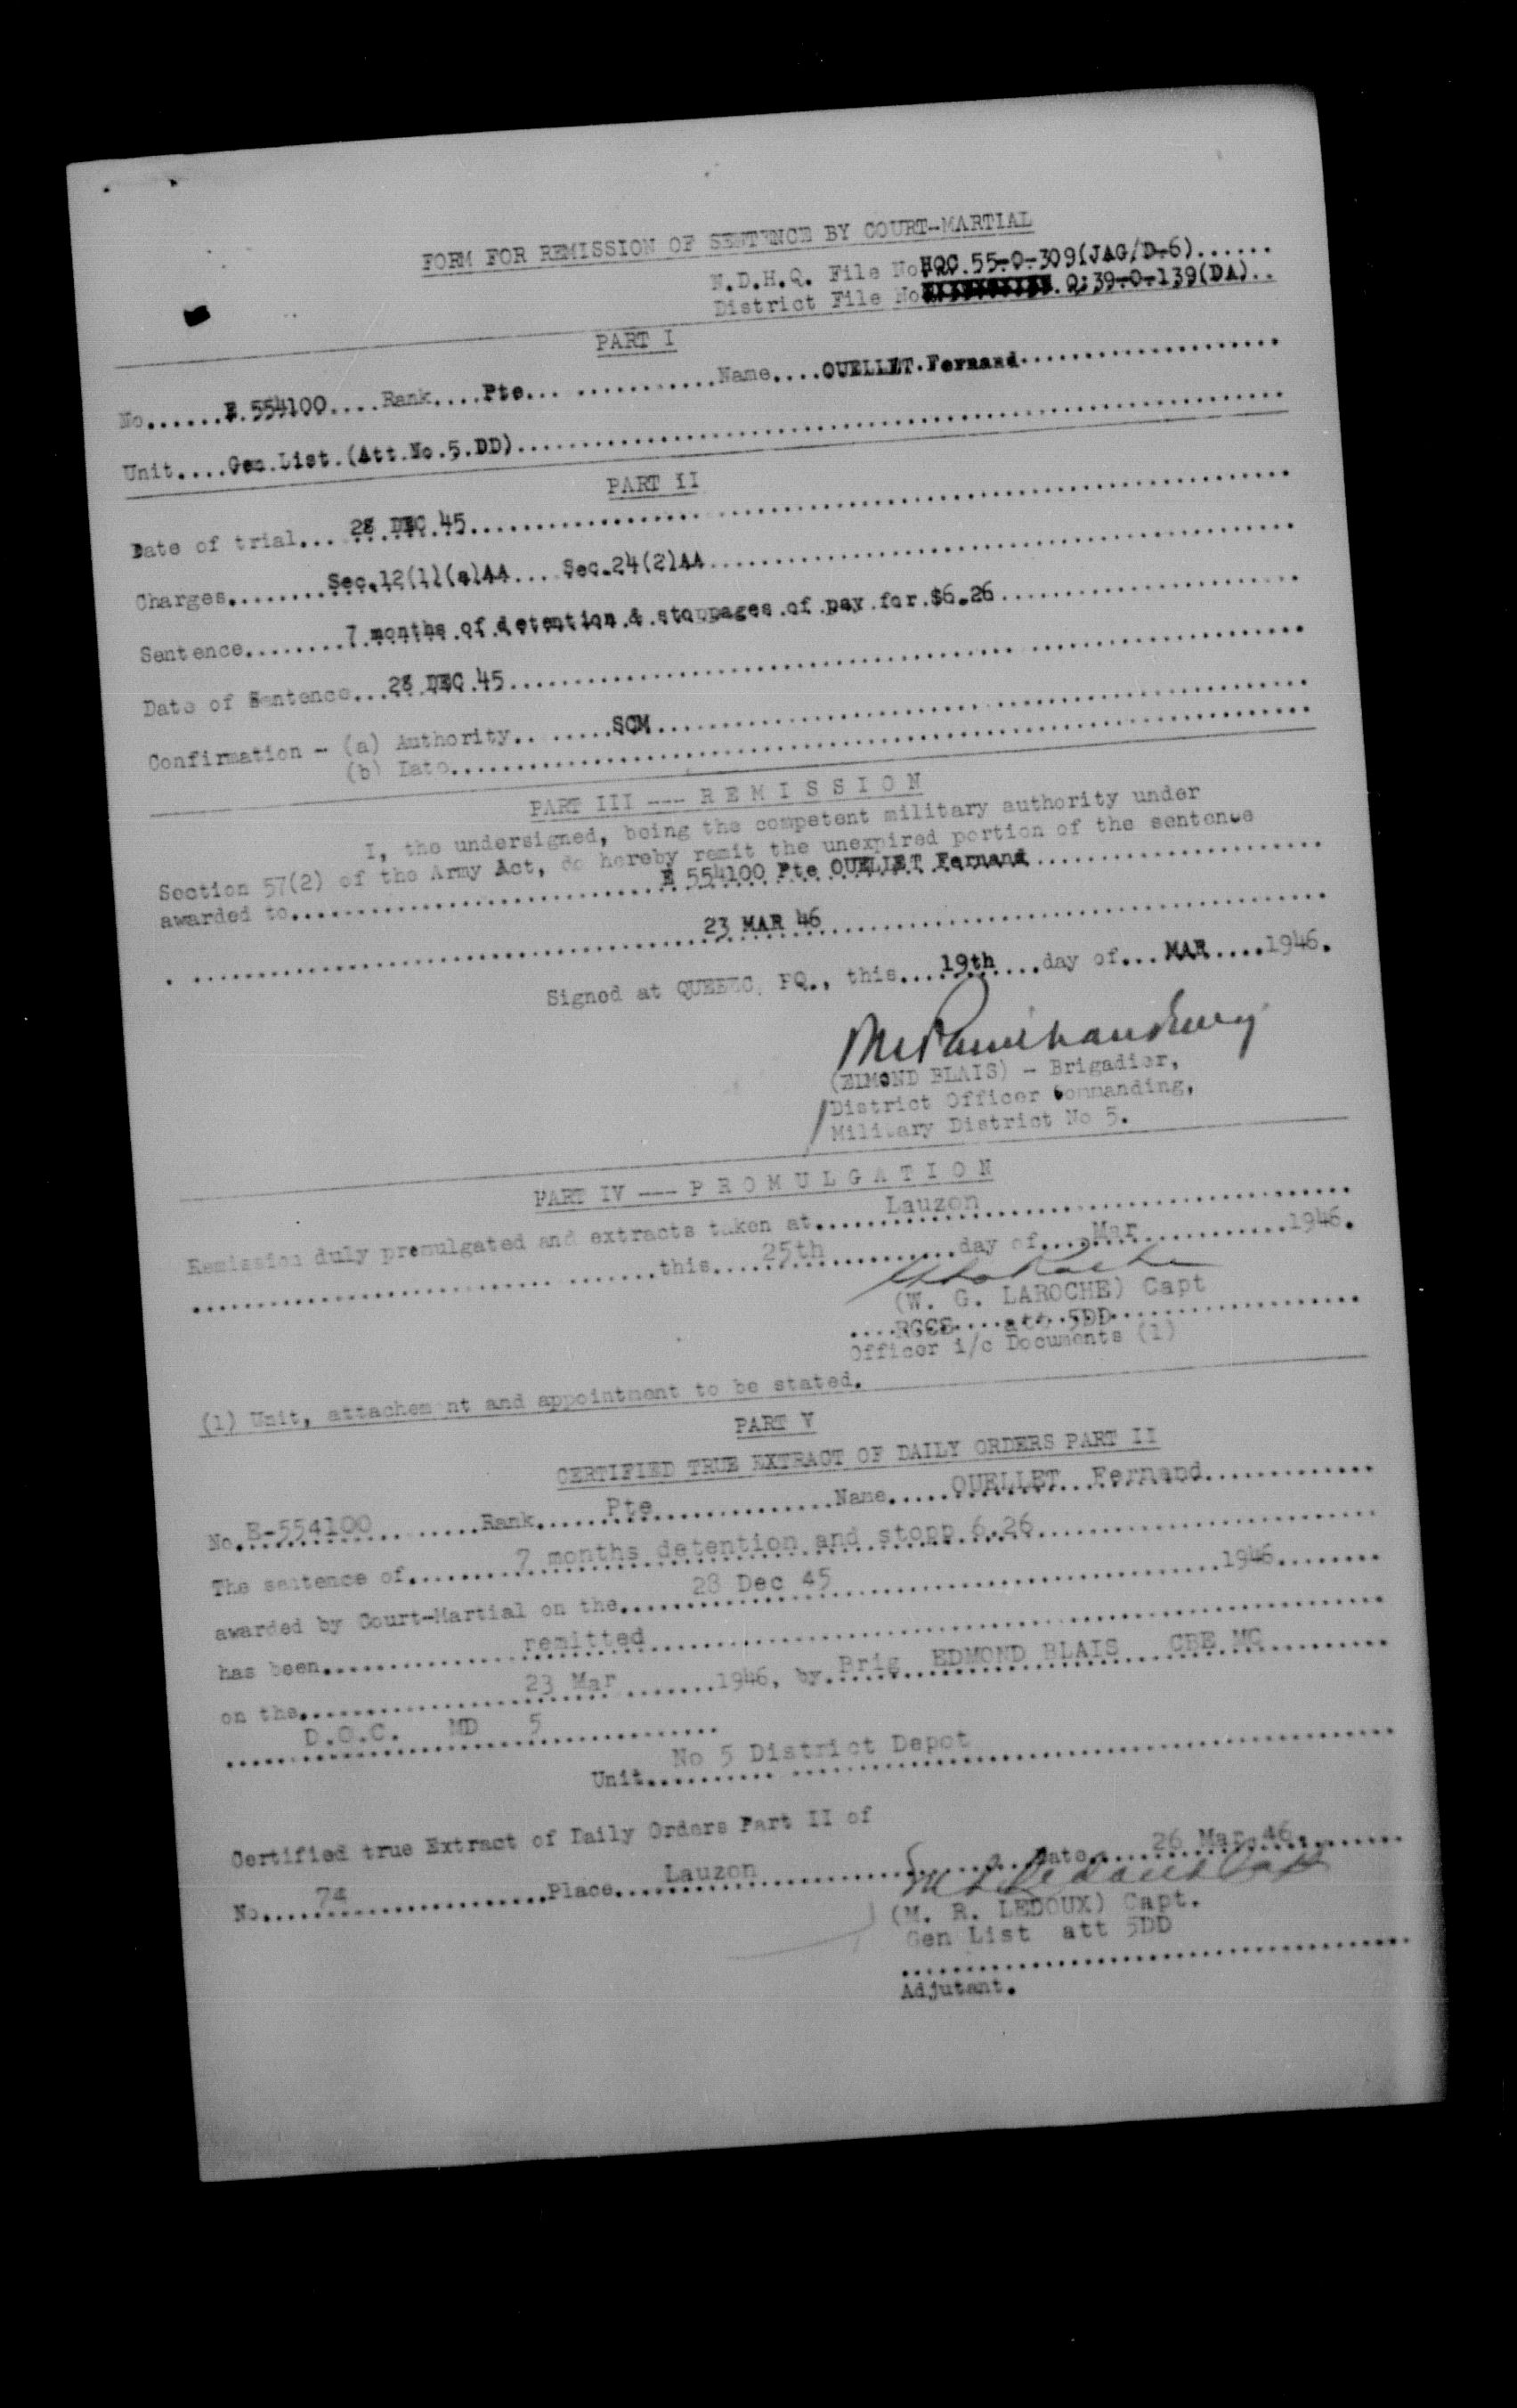 FORM FOR REMISSION OF SENTENCE BY COURT-MARTIAL
N.D.H.Q. File No. HQC.55-O-309(JAG/D-6)......
District File No. Q:39-O-139(DA)..
PART I
No......E.554100....Rank....Pte..................Name....OUELLET.Fernand....................
Unit....Gen.List.(Att.No.5.DD)............................................................
PART II
Date of trial...28 DEC 45............................................................
Charges.........Sec.12(1)(a)AA....Sec.24(2)AA.............................................
Sentence........7 months of detention & stoppages of pay for $6.26.........................
Date of Sentence...28 DEC 45............................................................
Confirmation - (a) Authority.........SCM..................................................
(b) Date............................................................
PART III --- R E M I S S I O N
I, the undersigned, being the competent military authority under
Section 57(2) of the Army Act, do hereby remit the unexpired portion of the sentence
awarded to..............................E 554100 Pte OUELLET Fernand.......................
. ..............................23 MAR 46..............................
Signed at QUEBEC, PQ., this....19th....day of...MAR....1946.
(EDMOND BLAIS) - Brigadier,
District Officer Commanding,
Military District No 5.
PART IV --- P R O M U L G A T I O N
Remission duly promulgated and extracts taken at......Lauzon..............................
..............................this....25th..........day of....Mar..............1946.
(W. G. LAROCHE) Capt
....RCCS....att 5DD....................
Officer i/c Documents (1)
(1) Unit, attachement and appointment to be stated.
PART V
CERTIFIED TRUE EXTRACT OF DAILY ORDERS PART II
No.E-554100..........Rank......Pte..............Name.....OUELLET Fernand.............
The sentence of........7 months detention and stopp 6.26..............................
awarded by Court-Martial on the.......28 Dec 45..............................1946........
has been...............remitted............................................................
on the..............23 Mar........1946, by.Brig EDMOND BLAIS CBE MC............
......D.O.C. MD 5....................
Unit....No 5 District Depot..............................
Certified true Extract of Daily Orders Part II of
No.....74....................Place....Lauzon....................Date....26 Mar 46.........
(M. R. LEDOUX) Capt.
Gen List att 5DD
........................................
Adjutant.